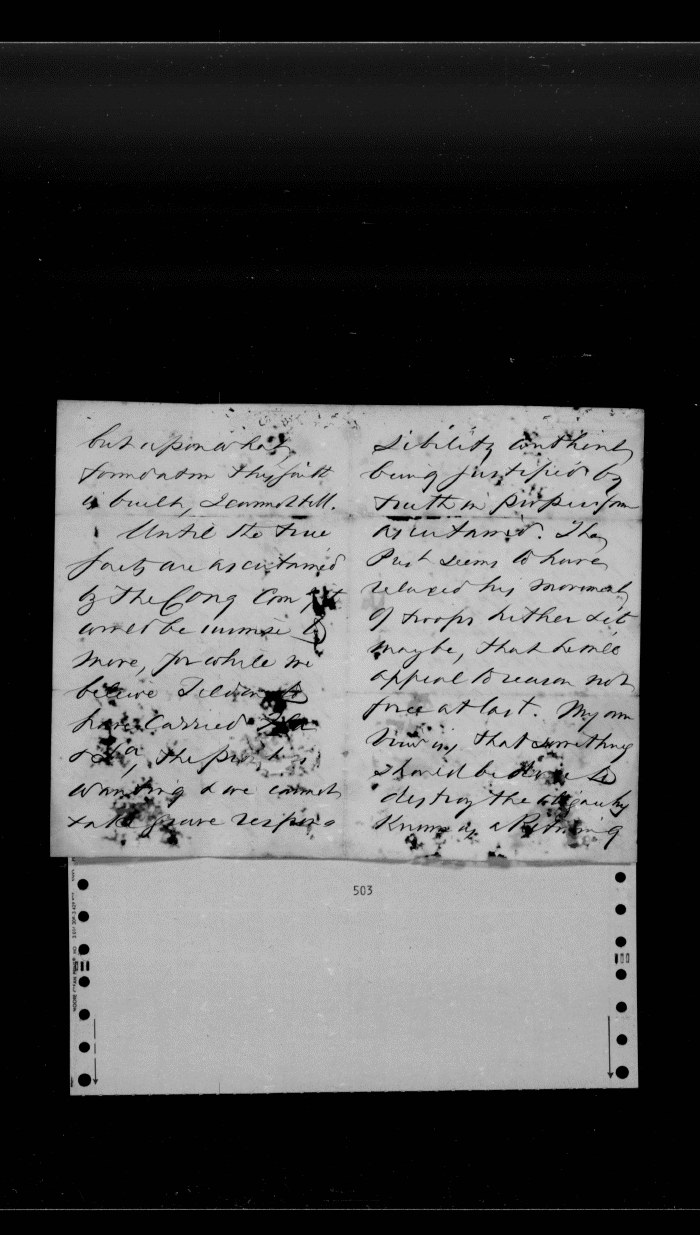 but upon what
foundation they faith
is built, I cannot tell.
Until the true
facts are ascertained
by the Cong Com
would be unwise to
more, for while we
believe Tilden to
have carried Fla
& La, the proof is
wanting & we cannot
take grave respon-
sibility without
being justified by
truth in
ascertained. The
Prest seems to have
relaxed his movements
of troops hither & it
maybe, that he will
appeal to reason not
force at last. My own
view is, that something
should be done to
destroy the oligarchy
known as a Returning
503